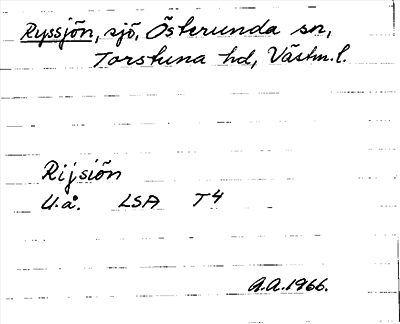 Ryssjön, sjö, Österunda sn,
Torstuna hd, Västm.l.
Rijsiön
U.å. LSA T4
A.A.1966.